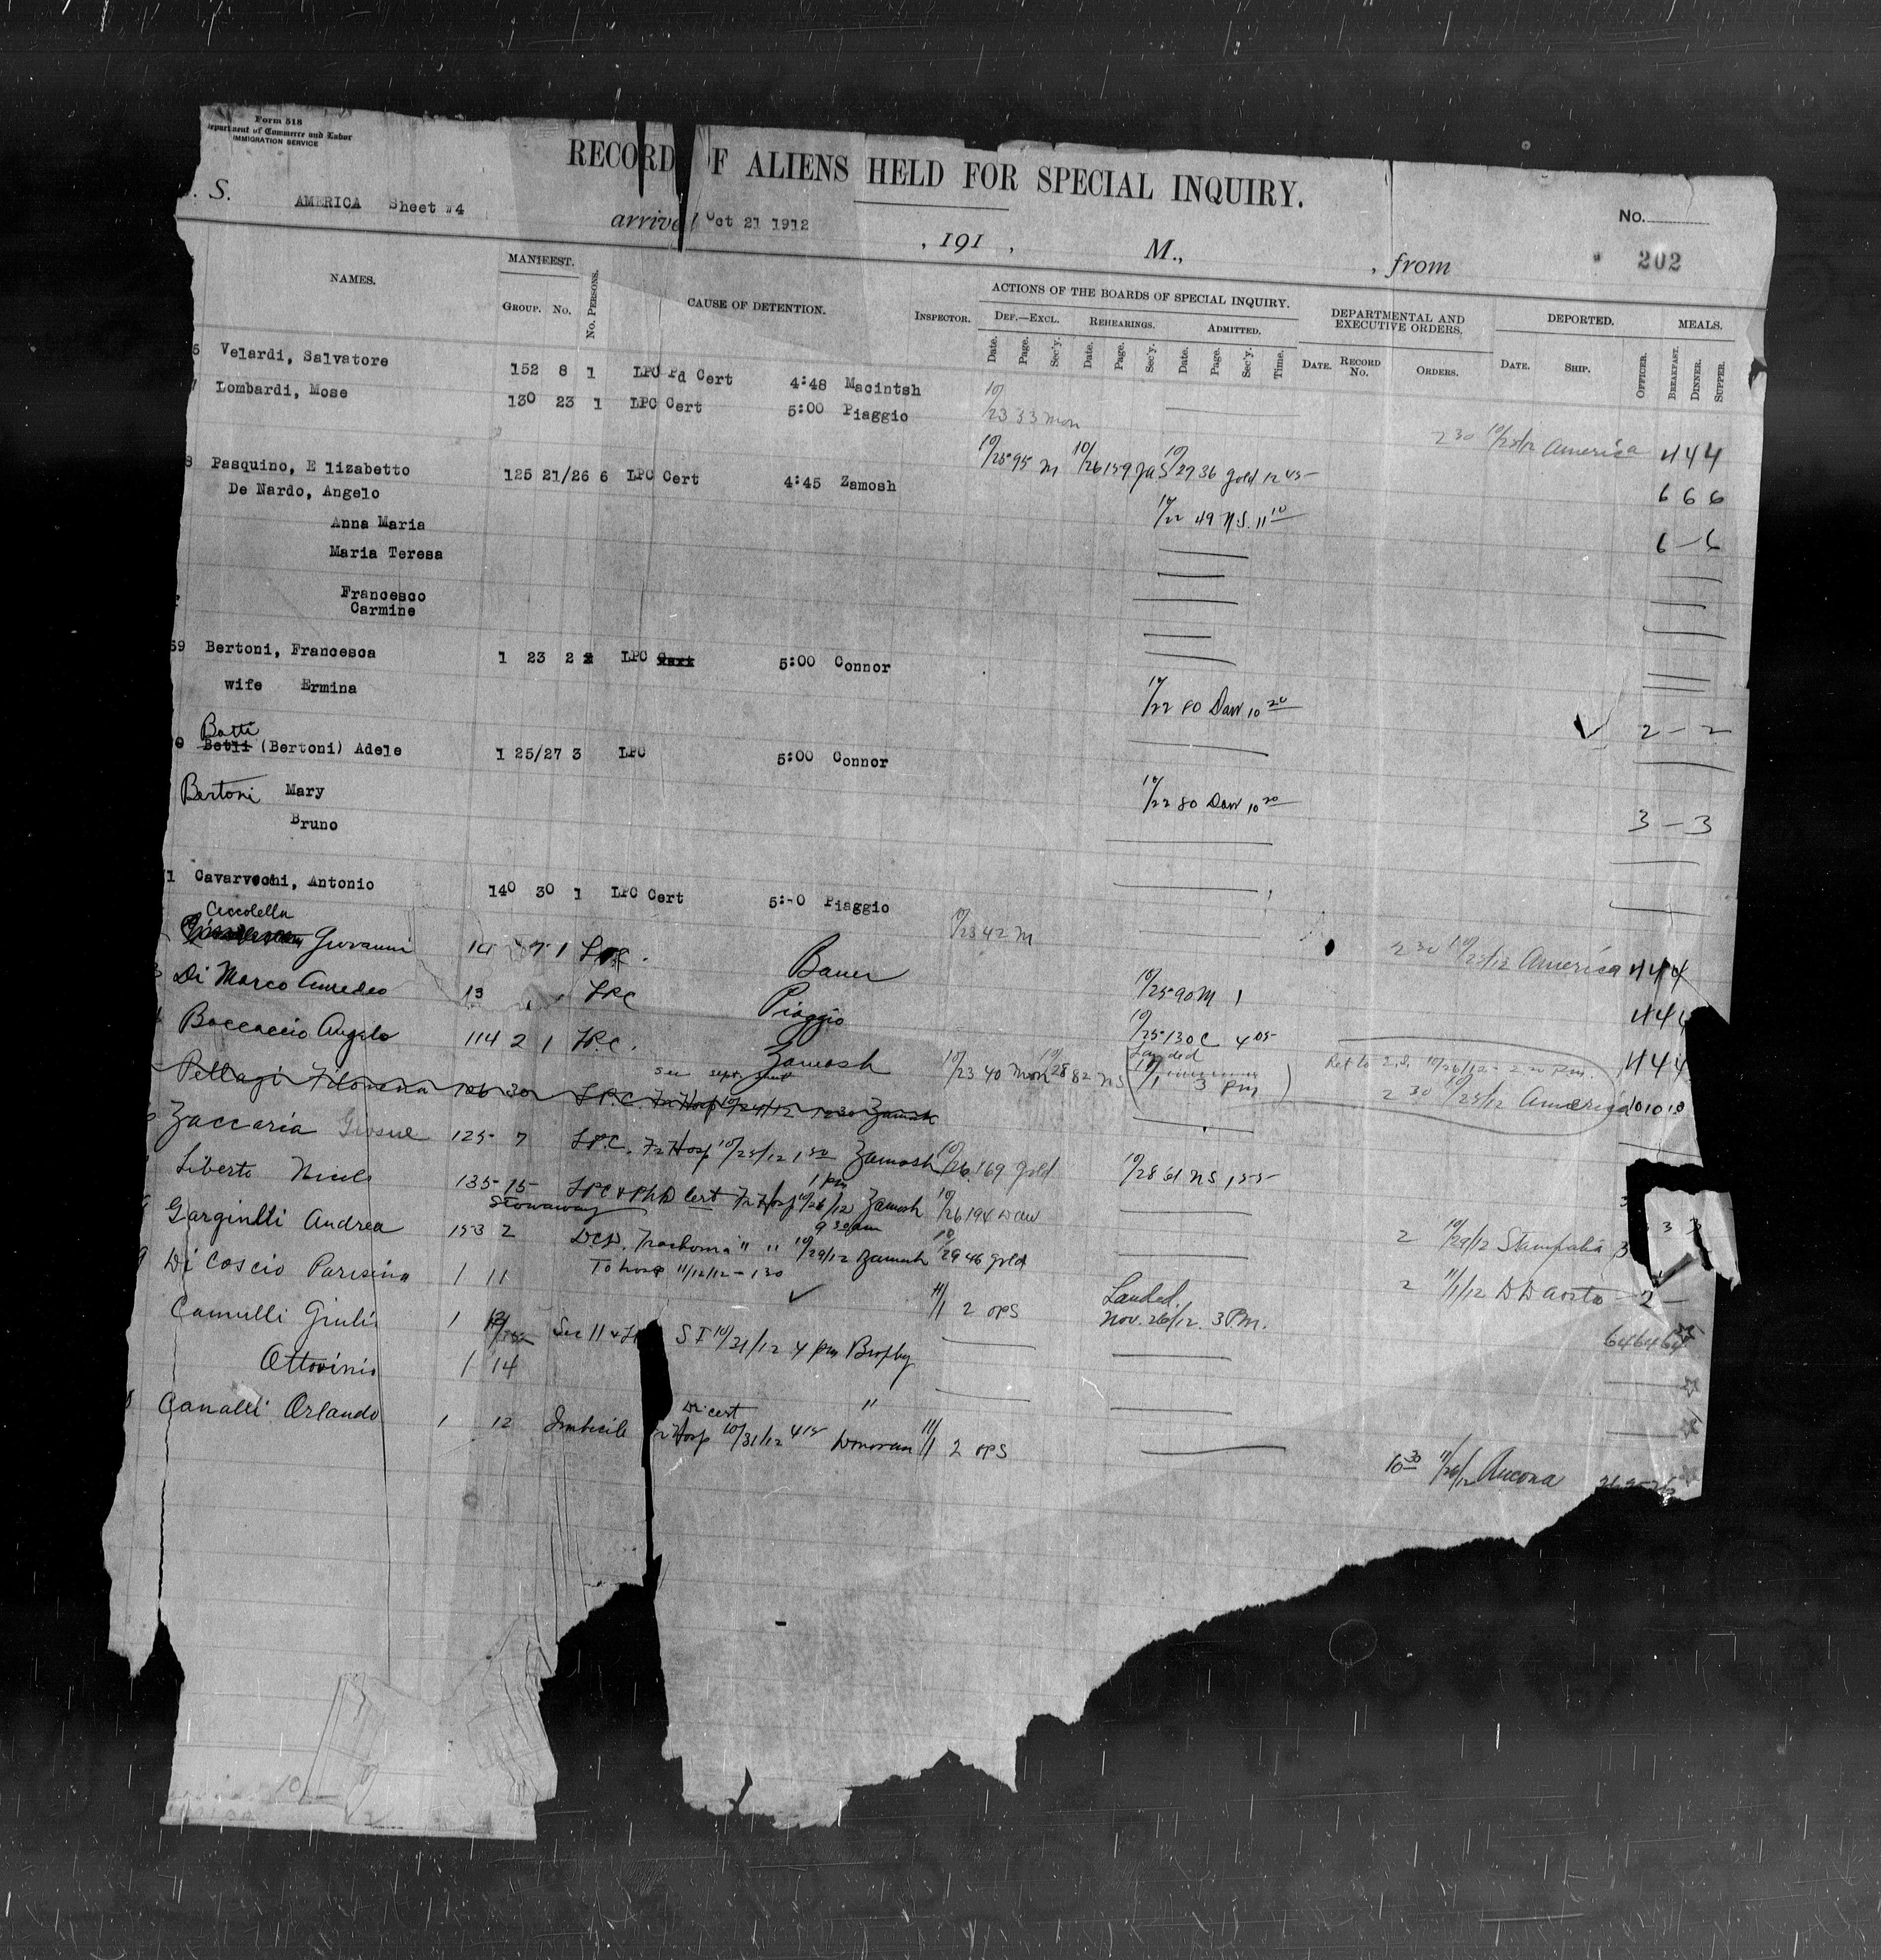 Form 518
Department of Commerce and Labor
IMMIGRATION SERVICE
RECORD OF ALIENS HELD FOR SPECIAL INQUIRY.
. S. AMERICA Sheet #4 arrived Oct 21 1912 , 191 , M., , from No.
202
NAMES. MANIFEST. GROUP. No. No. PERSONS. CAUSE OF DETENTION. INSPECTOR. ACTIONS OF THE BOARDS OF SPECIAL INQUIRY. DEPARTMENTAL AND EXECUTIVE ORDERS. DEPORTED. MEALS.
DEF.—EXCL. REHEARINGS. ADMITTED.
Date. Page. Sec'y. Date. Page. Sec'y. Date. Page. Sec'y. Time. DATE. RECORD No. ORDERS. DATE. SHIP. OFFICER. BREAKFAST. DINNER. SUPPER.
Velardi, Salvatore 152 8 1 LPC Pd Cert 4:48 Macintsh 10/23 53 Mon 2 30 10/25/12 America 4 4 4
Lombardi, Mose 130 23 1 LPC Cert 5:00 Piaggio 10/25 95 M 10/26 159 10/27 36 Gold 12 45 6 6 6
8 Pasquino, Elizabetto 125 21/26 6 LPC Cert 4:45 Zamosh 10/22 49 N.S. 11 10 6 – 6
De Nardo, Angelo
Anna Maria
Maria Teresa
Francesco
Carmine
69 Bertoni, Francesca 1 23 2 LPC Cert 5:00 Connor 10/22 80 Daw 10 20 2 – 2
wife Ermina
Batti
Betli (Bertoni) Adele 1 25/27 3 LPC 5:00 Connor 10/22 80 Daw 10 20 3 – 3
Bertoni Mary
Bruno
1 Cavarvochi, Antonio 140 30 1 LPC Cert 5:-0 Piaggio 10/23 42 M 2 30 10/25/12 America 4 4 4
Ceccolella
Giovanni 14 7 1 LPC. Bauer 10/25 90 M 4 4
Di Marco Amedeo 13 LPC Piaggio 10/25 130 C 4 05 4 4 4
Boccaccio Angelo 114 2 1 LPC. Zamosh 10/23 40 Mon 10/28 82 NS Landed 11/1 3 Pm 2 30 10/25/12 America 10 10 10
see sept. sheet
Pellagi Filomena 126 30 LPC. Fr Hosp 10/24/12 12 30 Zamosh
Zaccaria Giosue 125 7 LPC. Fr Hosp 10/25/12 1 50 Zamosh 10/26 169 Gold 10/28 61 NS 1 55
Liberto Nicole 135 15 LPC & Ph D Cert Fr Hosp 10/26/12 1 pm Zamosh 10/26 194 Daw 2 10/29/12 Stampalia 3
Stowaway
Garginelli Andrea 153 2 DCD. Trachoma " " 10/29/12 9 30 am Zamosh 10/29 46 Gold 2 11/1/12 D D Aosta – 2 –
To hosp 11/12/12 – 1 30
Di Coscio Parisina 1 11 11/1 2 OPS Landed. Nov. 26/12. 3 Pm. 64 64 64
Camulli Giulia 1 Sec 11 & S I 10/31/12 4 pm Brophy
Ottovinio 1 14 "
Dr cert
Canalli Orlando 1 12 Imbecile Fr Hosp 10/31/12 4 15 Donovan 11/1 2 OPS 10 30 11/20/12 Ancona